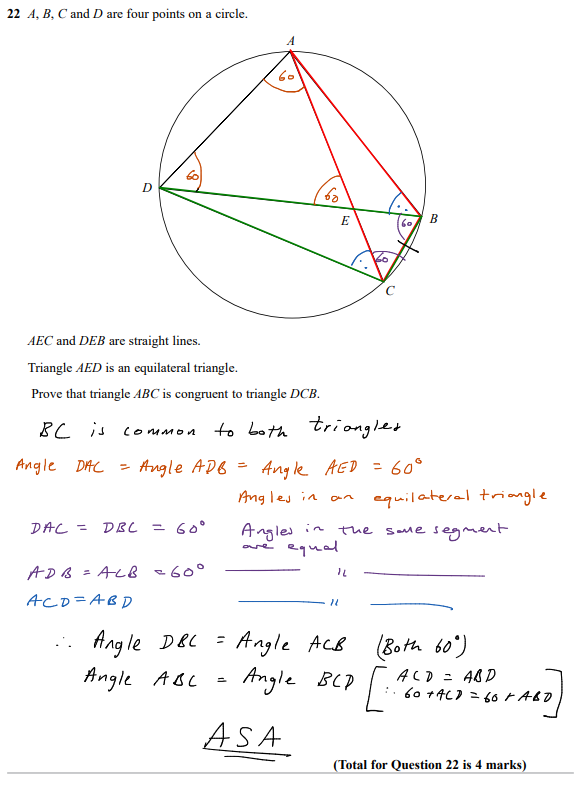 22 A, B, C and D are four points on a circle.
A
60
60
D
60
E
60
B
60
C
AEC and DEB are straight lines.
Triangle AED is an equilateral triangle.
Prove that triangle ABC is congruent to triangle DCB.
BC is common to both triangles
Angle DAC = Angle ADB = Angle AED = 60°
Angles in an equilateral triangle
DAC = DBC = 60° Angles in the same segment
are equal
ADB = ACB = 60° ——— " ———
ACD = ABD ——— " ———
∴ Angle DBC = Angle ACB (Both 60°)
Angle ABC = Angle BCD [ ACD = ABD
∴ 60 + ACD = 60 + ABD ]
ASA
(Total for Question 22 is 4 marks)